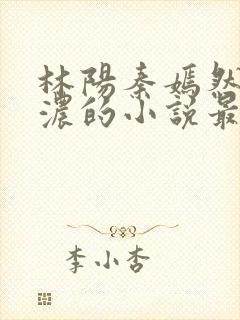 林陽秦嫣然
濃的小說最
李小杏